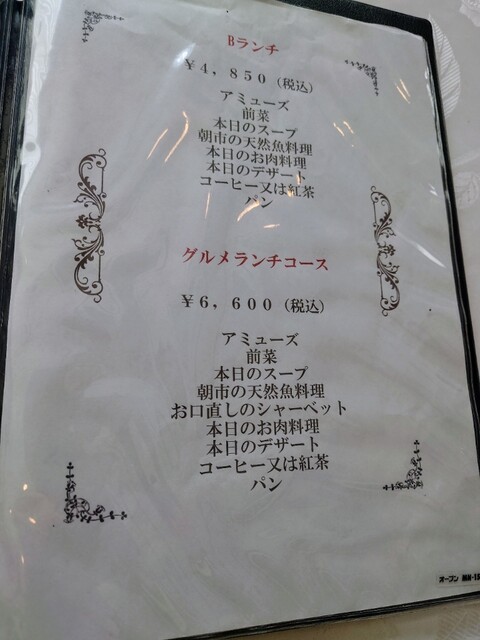 Bランチ
￥４，８５０（税込）
アミューズ
前菜
本日のスープ
朝市の天然魚料理
本日のお肉料理
本日のデザート
コーヒー又は紅茶
パン
グルメランチコース
￥６，６００（税込）
アミューズ
前菜
本日のスープ
朝市の天然魚料理
お口直しのシャーベット
本日のお肉料理
本日のデザート
コーヒー又は紅茶
パン
オープン